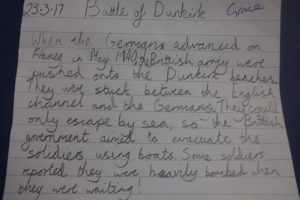 23-3-17 Battle of Dunkirk Grace
When the Germans advanced on
France in May 1940, the British army were
pushed onto the Dunkirk beaches.
They were stuck between the English
channel and the Germans. They could
only escape by sea, so the British
government aimed to evacuate the
soldiers using boats. Some soldiers
reported they were heavily bombed when
they were waiting!